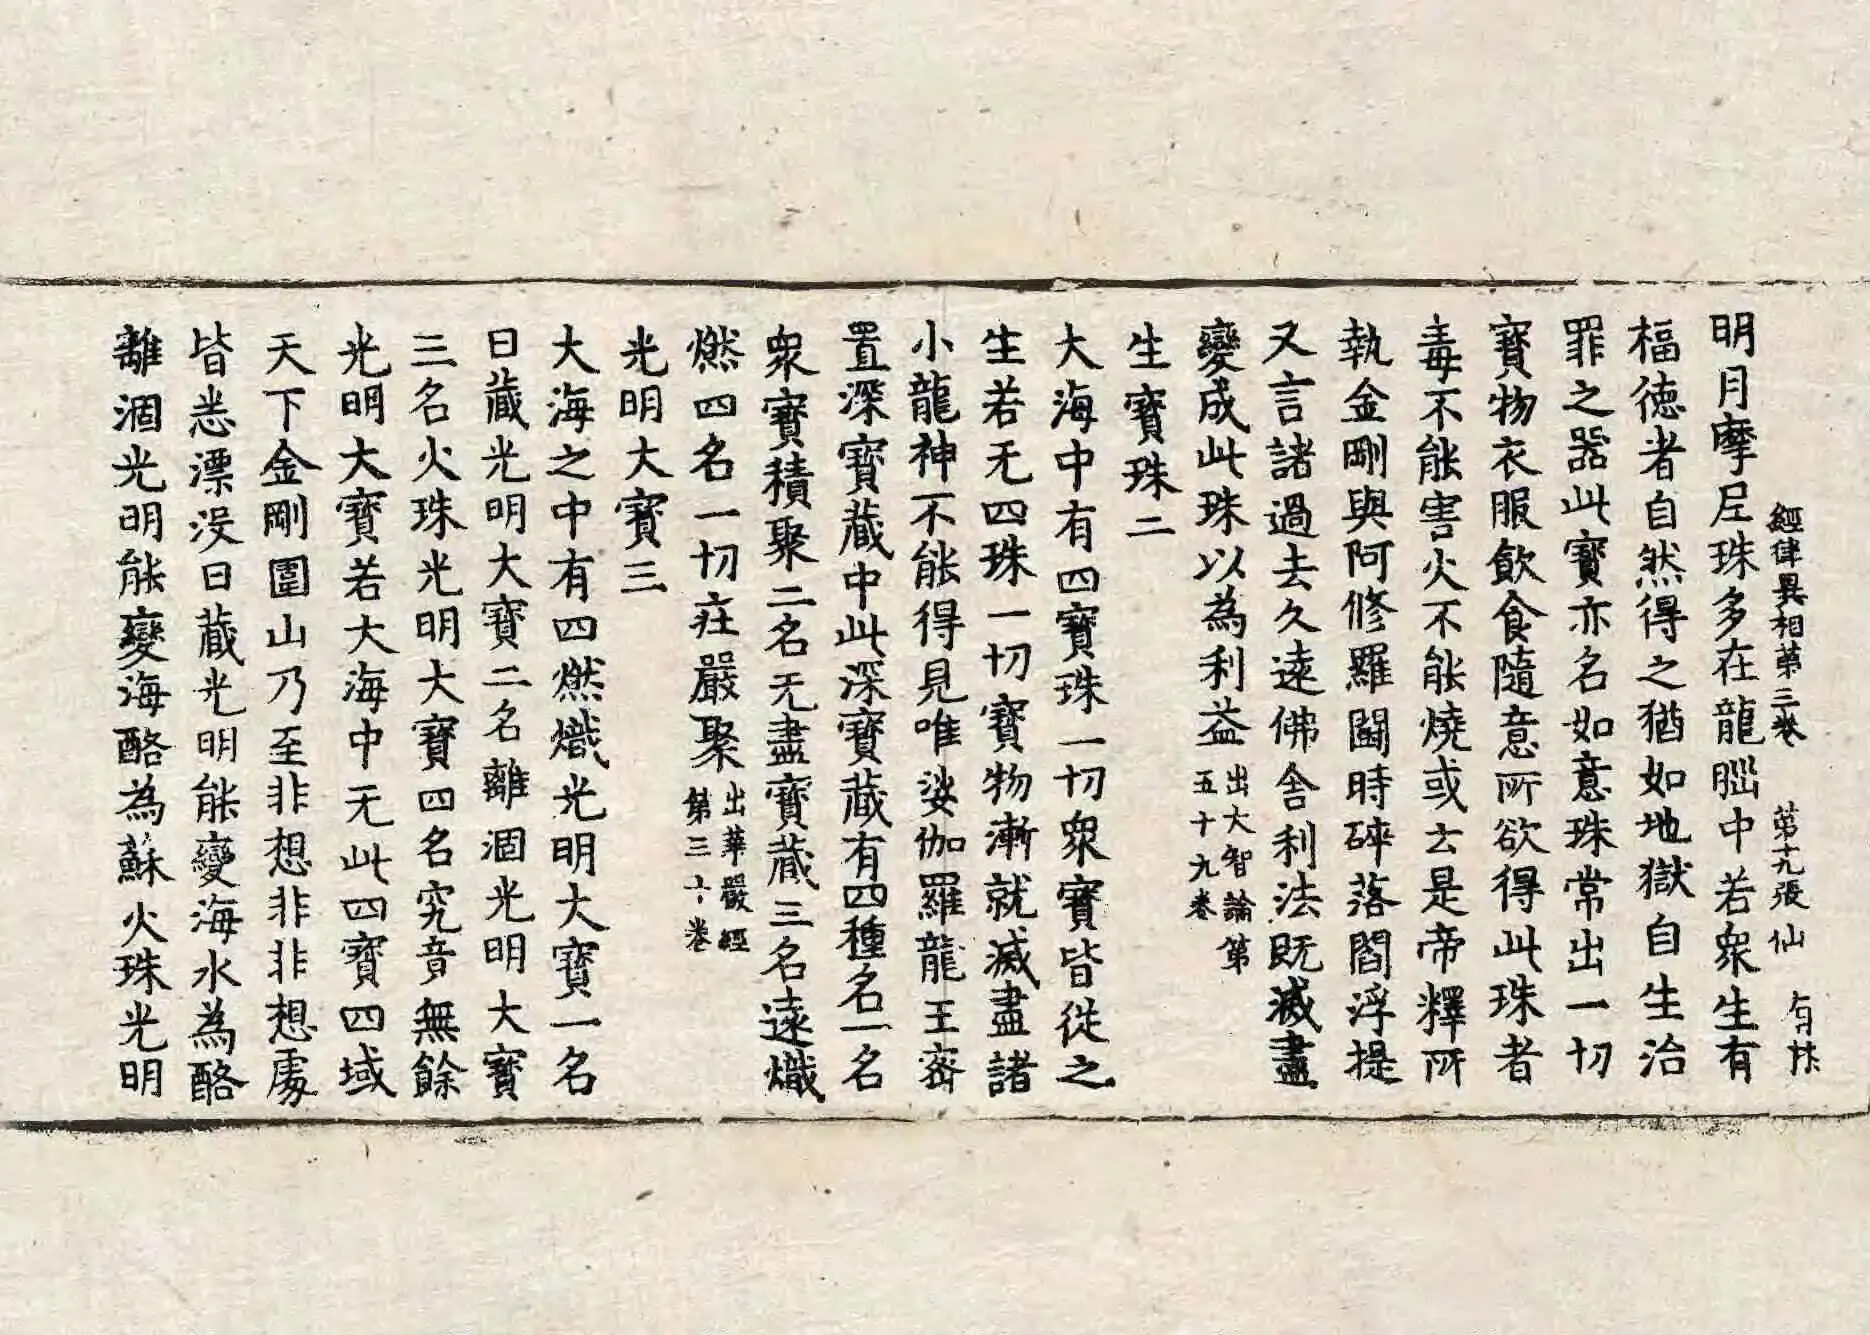 經律異相第三卷 第十九張 仙
明月摩尼珠多在龍腦中若衆生有
福德者自然得之猶如地獄自生治
罪之器此寶亦名如意珠常出一切
寶物衣服飲食隨意所欲得此珠者
毒不能害火不能燒或云是帝釋所
執金剛與阿修羅鬪時碎落閻浮提
又言諸過去久遠佛舍利法既滅盡
變成此珠以為利益出大智論第
五十九卷
生寶珠二
大海中有四寶珠一切衆寶皆從之
生若无四珠一切寶物漸就滅盡諸
小龍神不能得見唯娑伽羅龍王密
置深寶藏中此深寶藏有四種名一名
衆寶積聚二名无盡寶藏三名遠熾
燃四名一切莊嚴聚出華嚴經
第三十卷
光明大寶三
大海之中有四燃熾光明大寶一名
日藏光明大寶二名離涸光明大寶
三名火珠光明大寶四名究竟無餘
光明大寶若大海中无此四寶四域
天下金剛圍山乃至非想非非想處
皆悉漂没日藏光明能變海水為酪
離涸光明能變海酪為蘇火珠光明